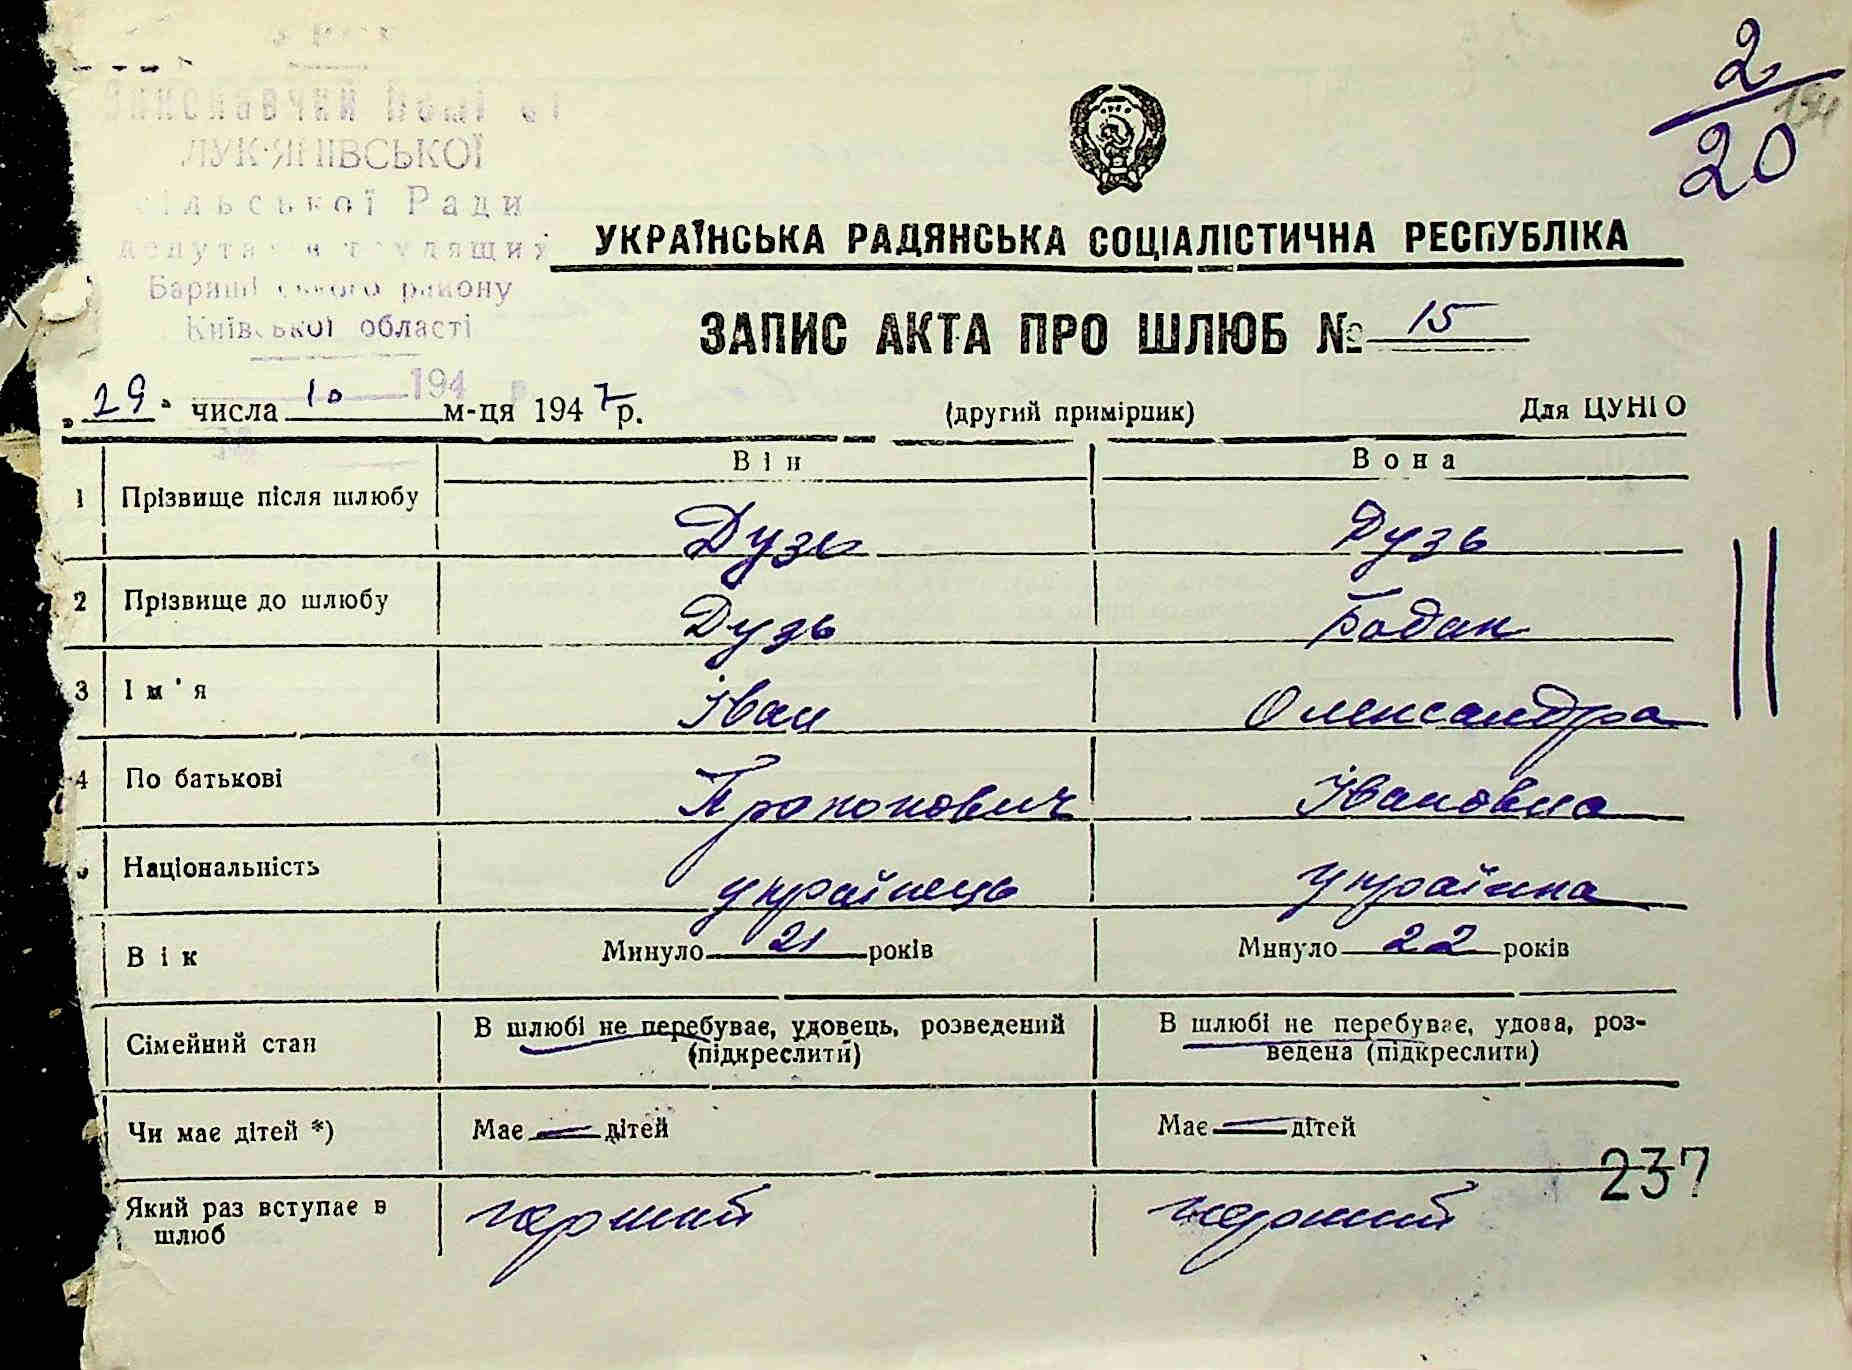 2/20
ЛУК'ЯНІВСЬКОЇ
сільської Ради
депутатів трудящих
Баришівського району
Київської області
194 р.
УКРАЇНСЬКА РАДЯНСЬКА СОЦІАЛІСТИЧНА РЕСПУБЛІКА
ЗАПИС АКТА ПРО ШЛЮБ № 15
„29" числа 10 м-ця 1947 р. (другий примірник) Для ЦУНГО
Він Вона
1 Прізвище після шлюбу Дузь Дузь
2 Прізвище до шлюбу Дузь Бодан
3 Ім'я Іван Олександра
4 По батькові Прокопович Івановна
Національність українець українка
Вік Минуло 21 років Минуло 22 років
Сімейний стан В шлюбі не перебуває, удовець, розведений (підкреслити) В шлюбі не перебуває, удова, роз-
ведена (підкреслити)
Чи має дітей *) Має — дітей Має — дітей
237
Який раз вступає в шлюб перший перший